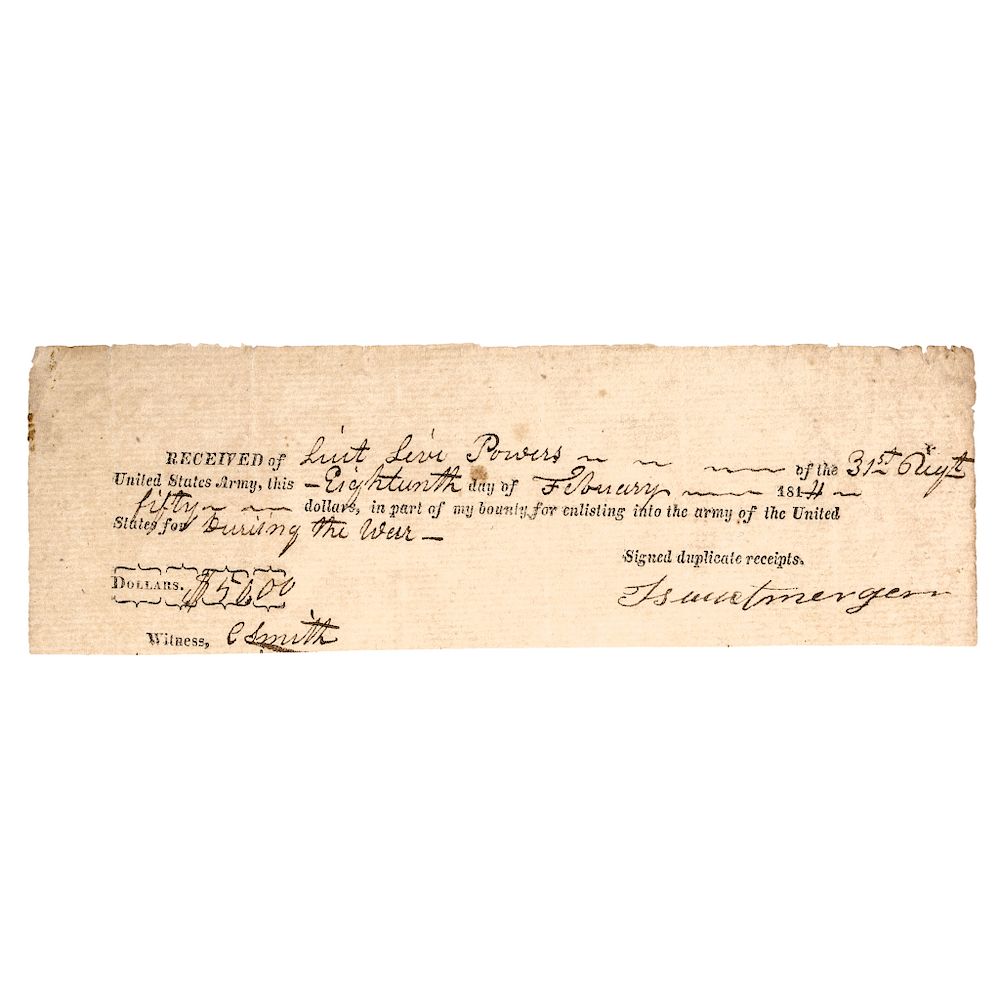 RECEIVED of Liut Levi Powers of the 31st Regt
United States Army, this Eighteenth day of Febuary 1814
fifty dollars, in part of my bounty for enlisting into the army of the United
States for During the War
Signed duplicate receipts.
DOLLARS. $50.00
Witness, C Smith